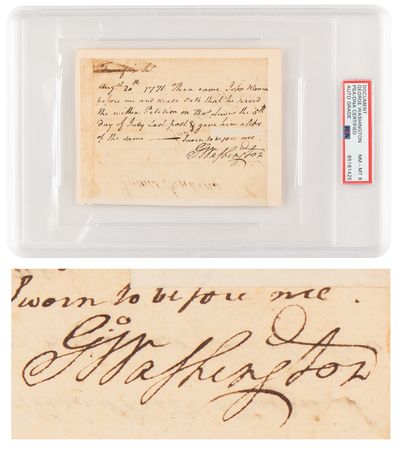 Fairfax Ss.
Augst 20th 1771 Then came John Mason
before me and made oath that he served
the within Petition on Thos Lewis the 5th
day of July Last past & gave him a Copy
of the same — Sworn to before me.
Go Washington
DOCUMENT
GEORGE WASHINGTON
PSA/DNA CERTIFIED
AUTO GRADE
NM - MT 8
85161425
Sworn to before me.
Go Washington